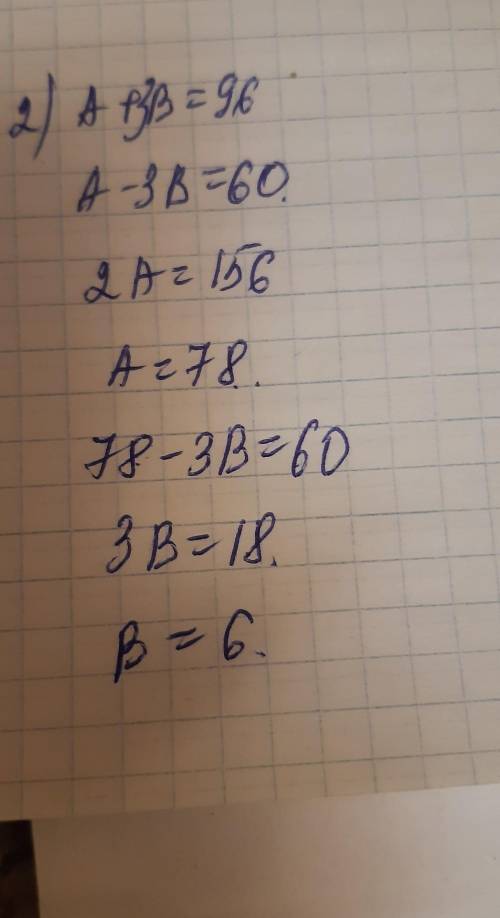 2) A + 3B = 96
A - 3B = 60.
2A = 156
A = 78.
78 - 3B = 60
3B = 18.
B = 6.